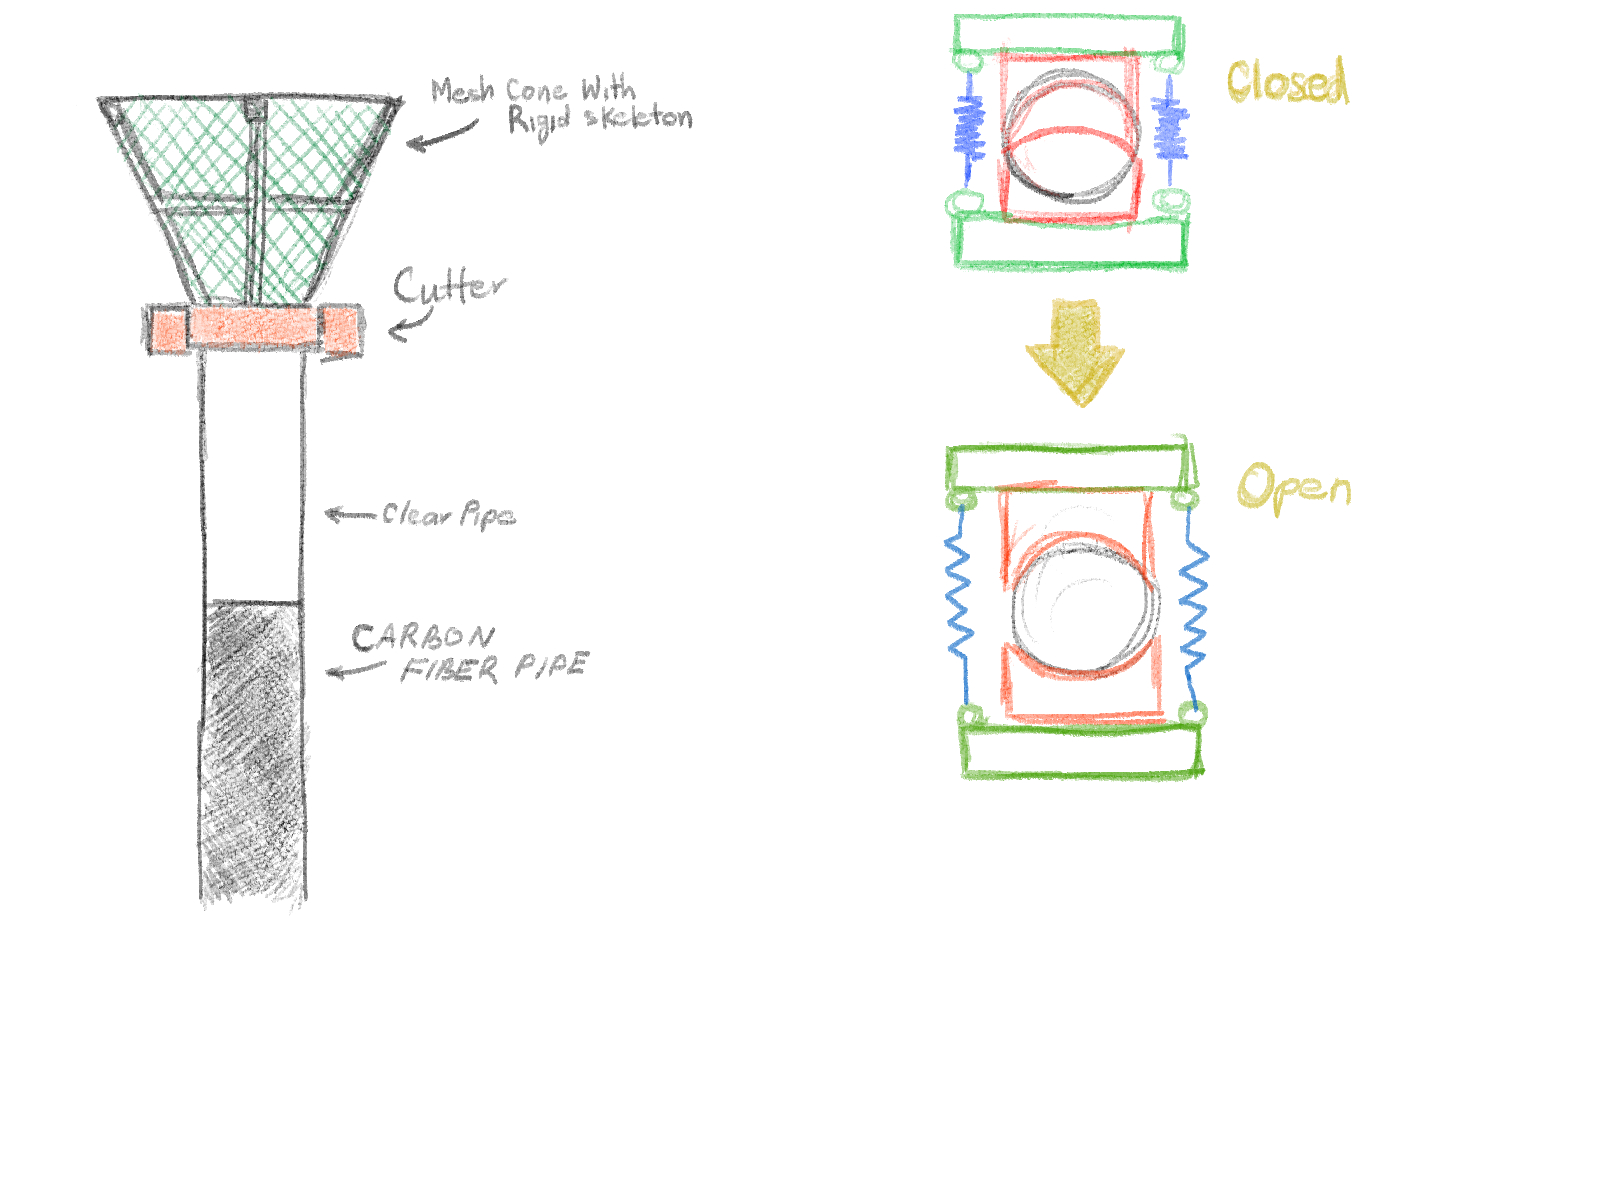 Mesh Cone With
Rigid skeleton
Cutter
Clear Pipe
CARBON
FIBER PIPE
Closed
Open